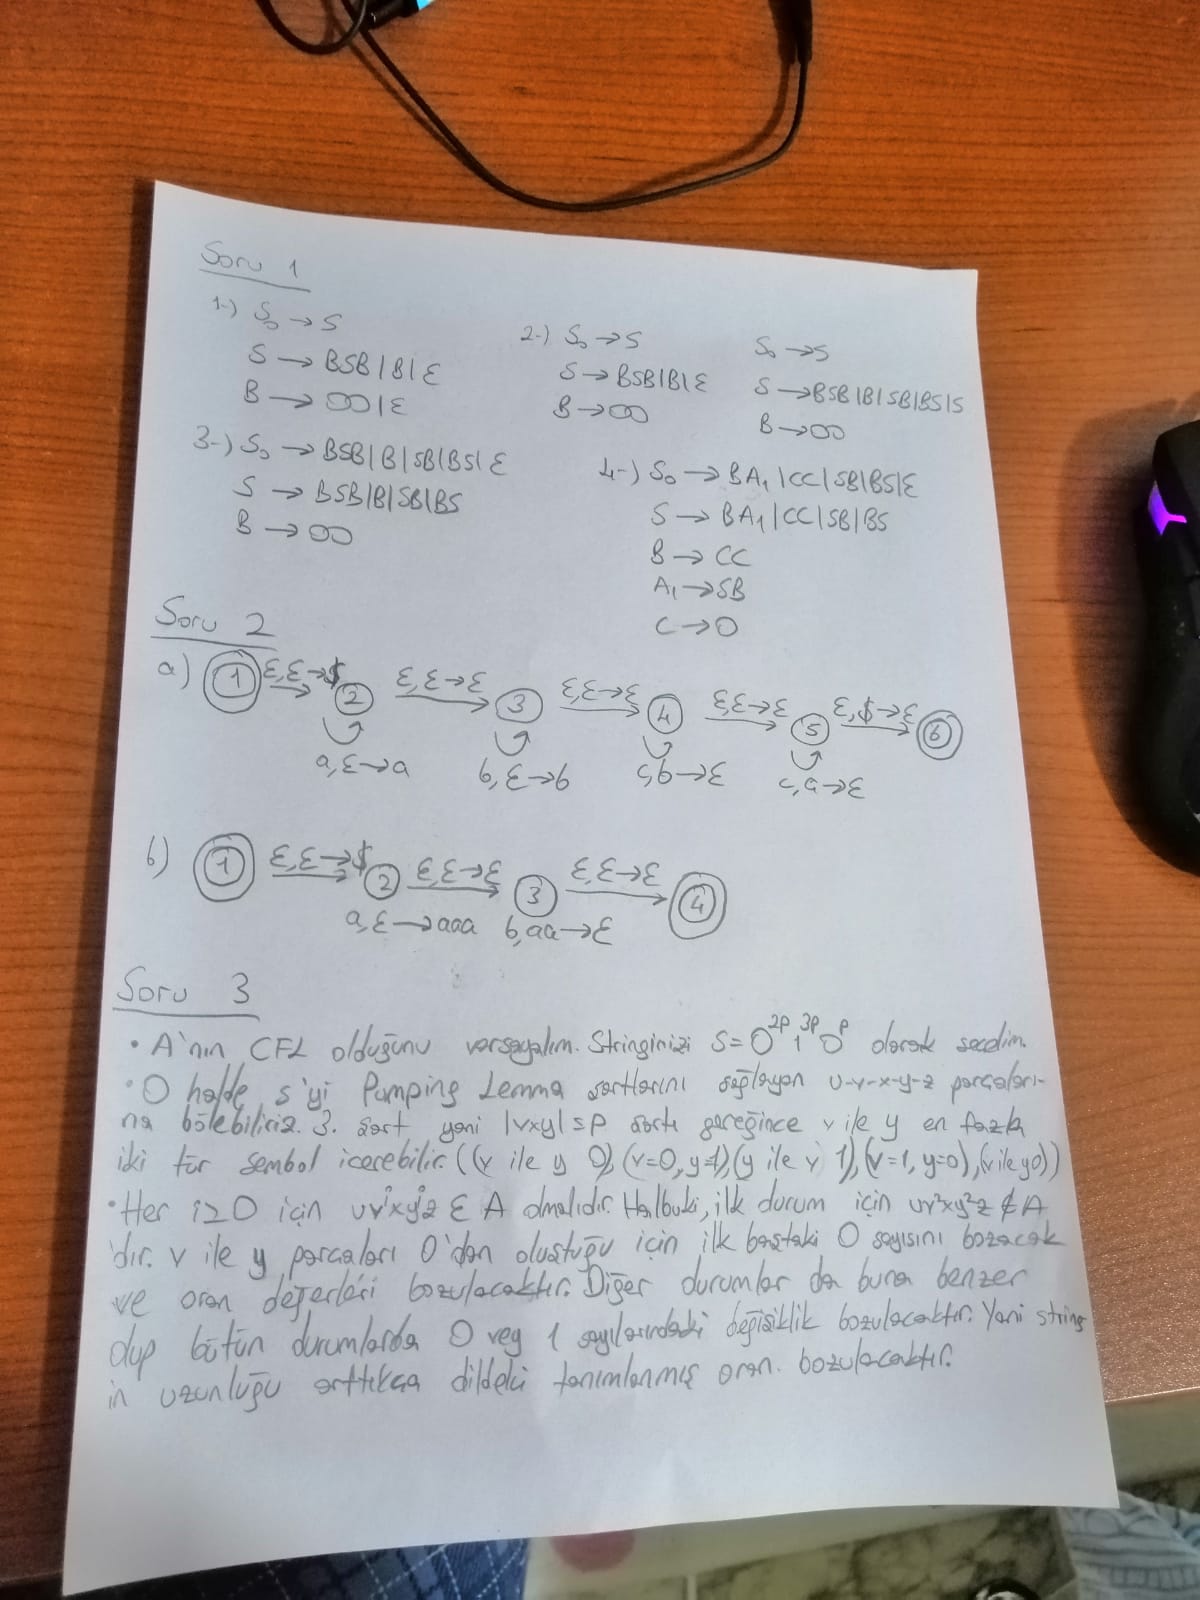 Soru 1
1-) S₀ → S
S → BSB | B | ε
B → 00 | ε
2-) S₀ → S
S → BSB | B | ε
B → 00
S₀ → S
S → BSB | B | SB | BS | S
B → 00
3-) S₀ → BSB | B | SB | BS | ε
S → BSB | B | SB | BS
B → 00
4-) S₀ → BA₁ | CC | SB | BS | ε
S → BA₁ | CC | SB | BS
B → CC
A₁ → SB
C → 0
Soru 2
a) 1 ε,ε→$ 2 ε,ε→ε 3 ε,ε→ε 4 ε,ε→ε 5 ε,$→ε 6
a,ε→a b,ε→b c,b→ε c,a→ε
b) 1 ε,ε→$ 2 ε,ε→ε 3 ε,ε→ε 4
a,ε→aaa b,aa→ε
Soru 3
• A'nın CFL olduğunu varsayalım. Stringinizi S = 0²ᴾ 1³ᴾ 0ᴾ olarak seçelim.
• O halde s'yi Pumping Lemma şartlarını sağlayan u-v-x-y-z parçaları-
na bölebiliriz. 3. şart yani |vxy| ≤ P şartı gereğince v ile y en fazla
iki tür sembol içerebilir. ((v ile y 0), (v=0, y=1), (y ile v 1), (v=1, y=0), (v ile y 0))
• Her i≥0 için uvⁱxyⁱz ∈ A olmalıdır. Halbuki, ilk durum için uv²xy²z ∉ A
'dır. v ile y parçaları 0'dan oluştuğu için ilk baştaki 0 sayısını bozacak
ve oran değerleri bozulacaktır. Diğer durumlar da buna benzer
olup bütün durumlarda 0 vey 1 sayılarındaki değişiklik bozulacaktır. Yani string
in uzunluğu arttıkça dildeki tanımlanmış oran. bozulacaktır.